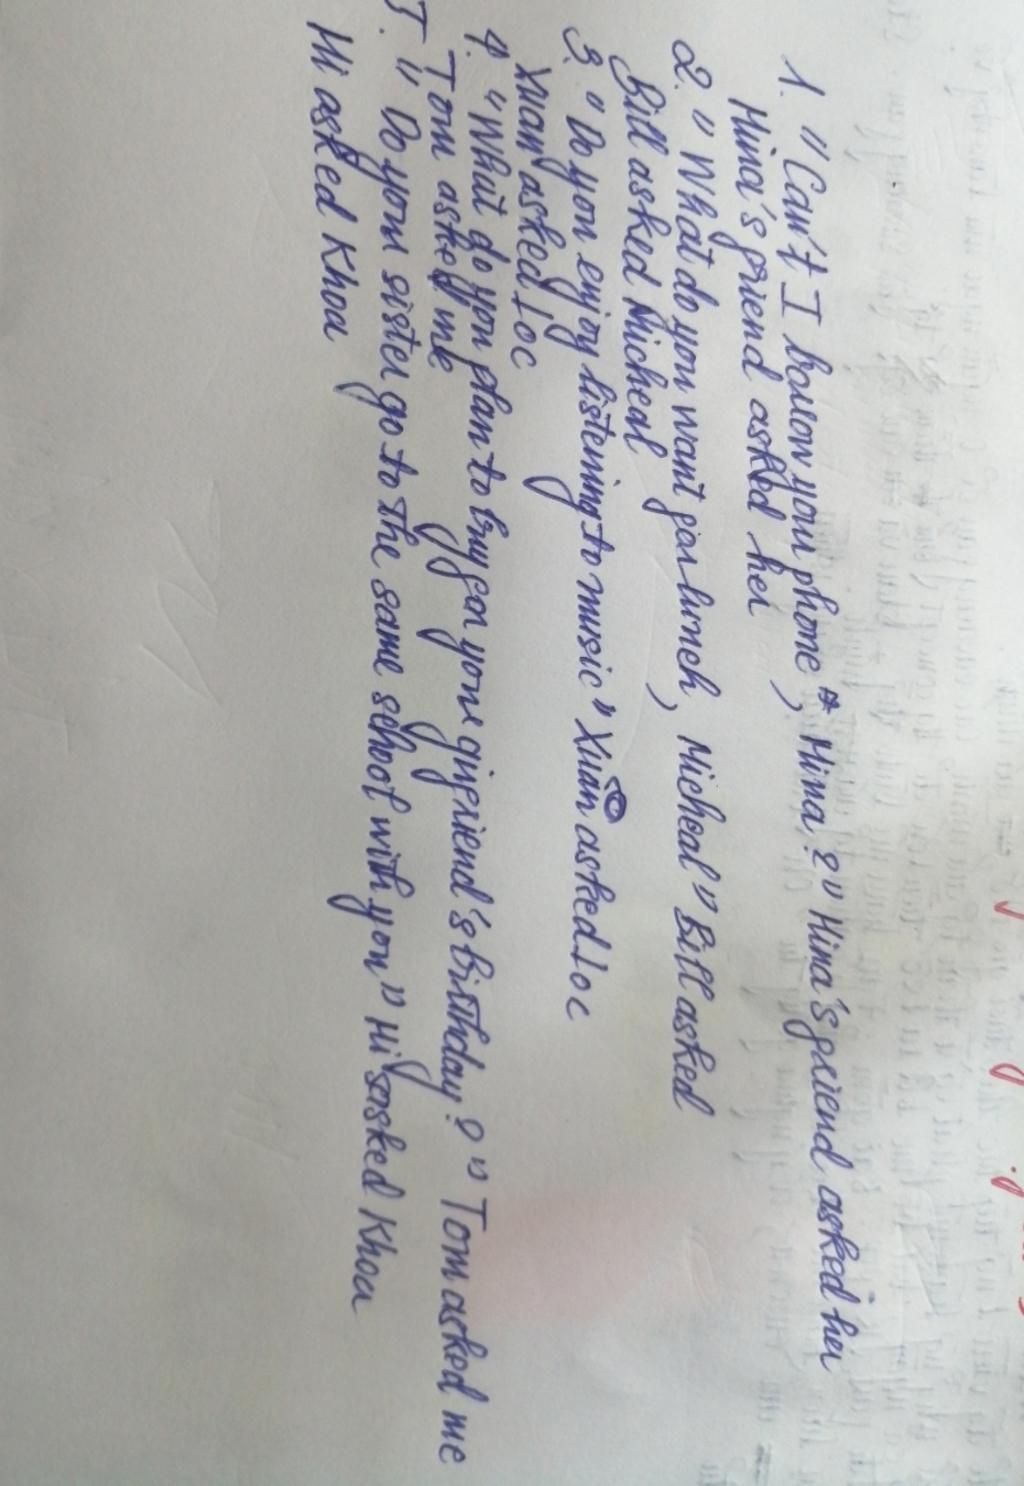 1. "Can't I borrow your phone, Hina?" Hina's friend asked her
Hina's friend asked her
2. "What do you want for lunch, Micheal" Bill asked
Bill asked Micheal
3. "Do you enjoy listening to music" Xuan asked Loc
Xuan asked Loc
4. "What do you plan to buy for your girfriend's birthday?" Tom asked me
Tom asked me
5. "Do your sister go to the same school with you" Hi asked Khoa
Hi asked Khoa